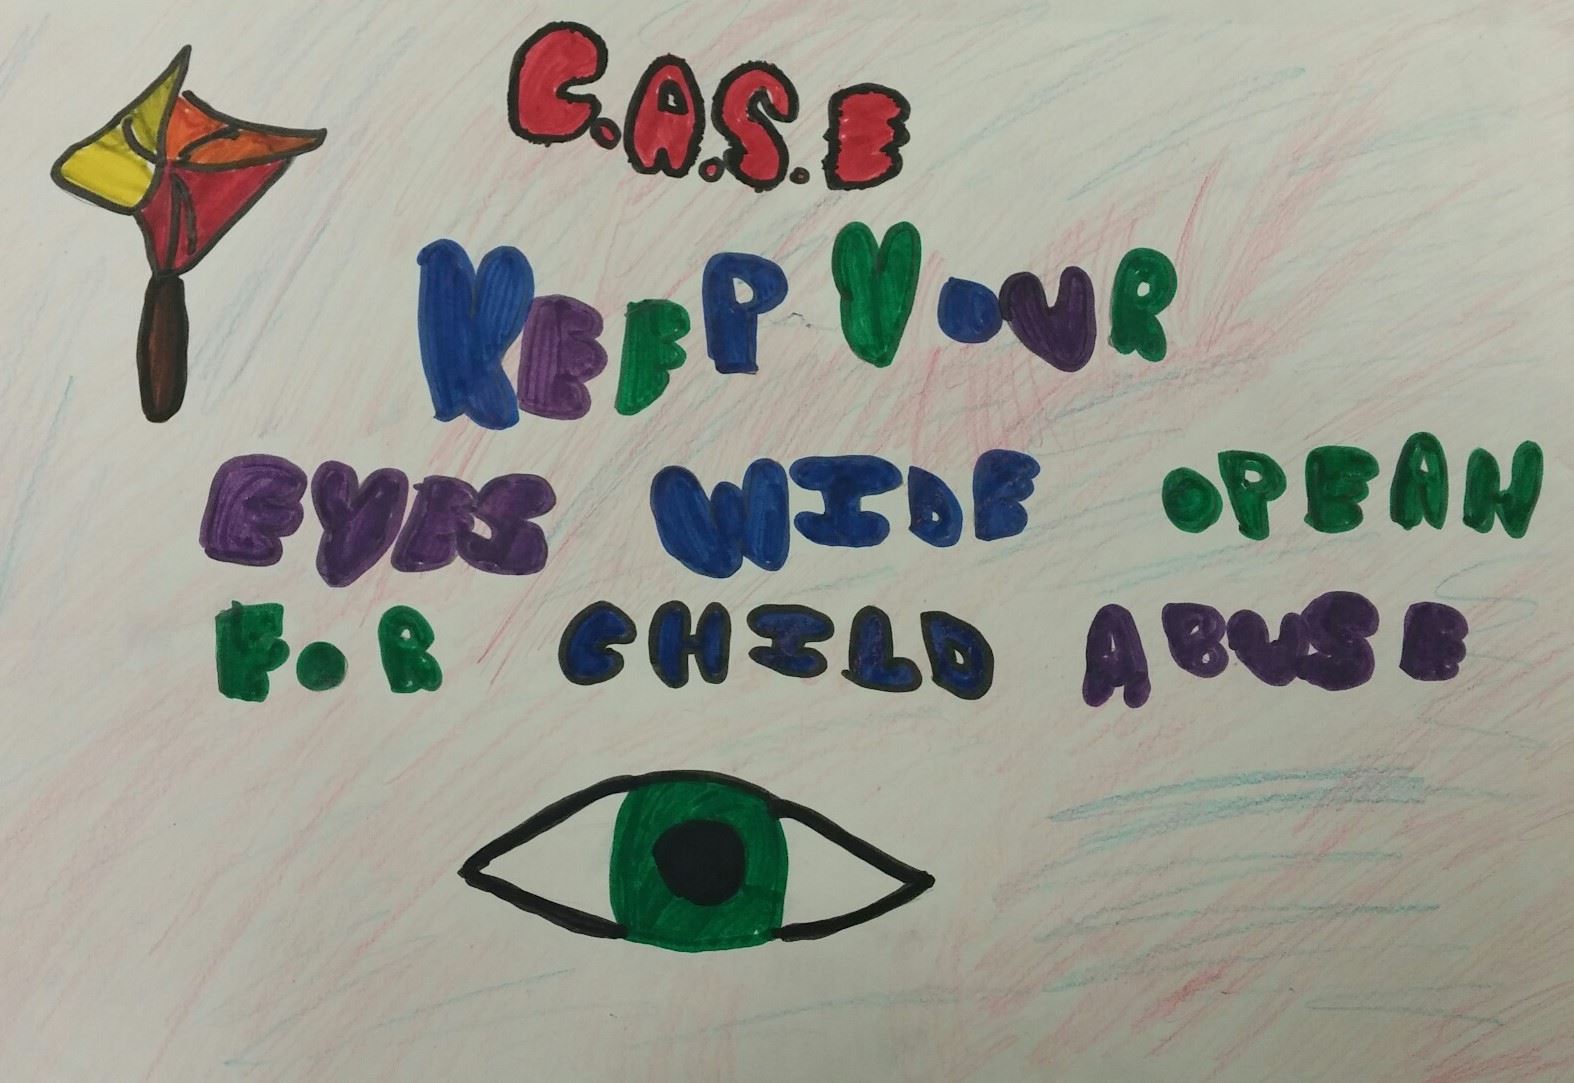 C.A.S.E
KEEP YOUR
EYES WIDE OPEAN
FOR CHILD ABUSE